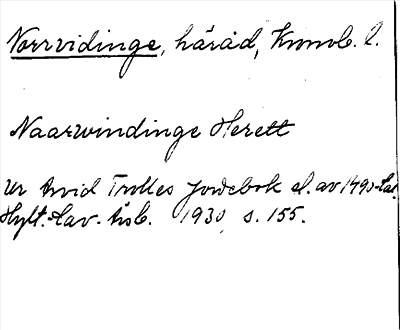 Norrvidinge, härad, Kronob. l.
Naarwindinge Herett
Ur Arvid Trolles Jordebok sl. av 1490-tal.
Hylt.-Cav. Åsb. 1930, s. 155.